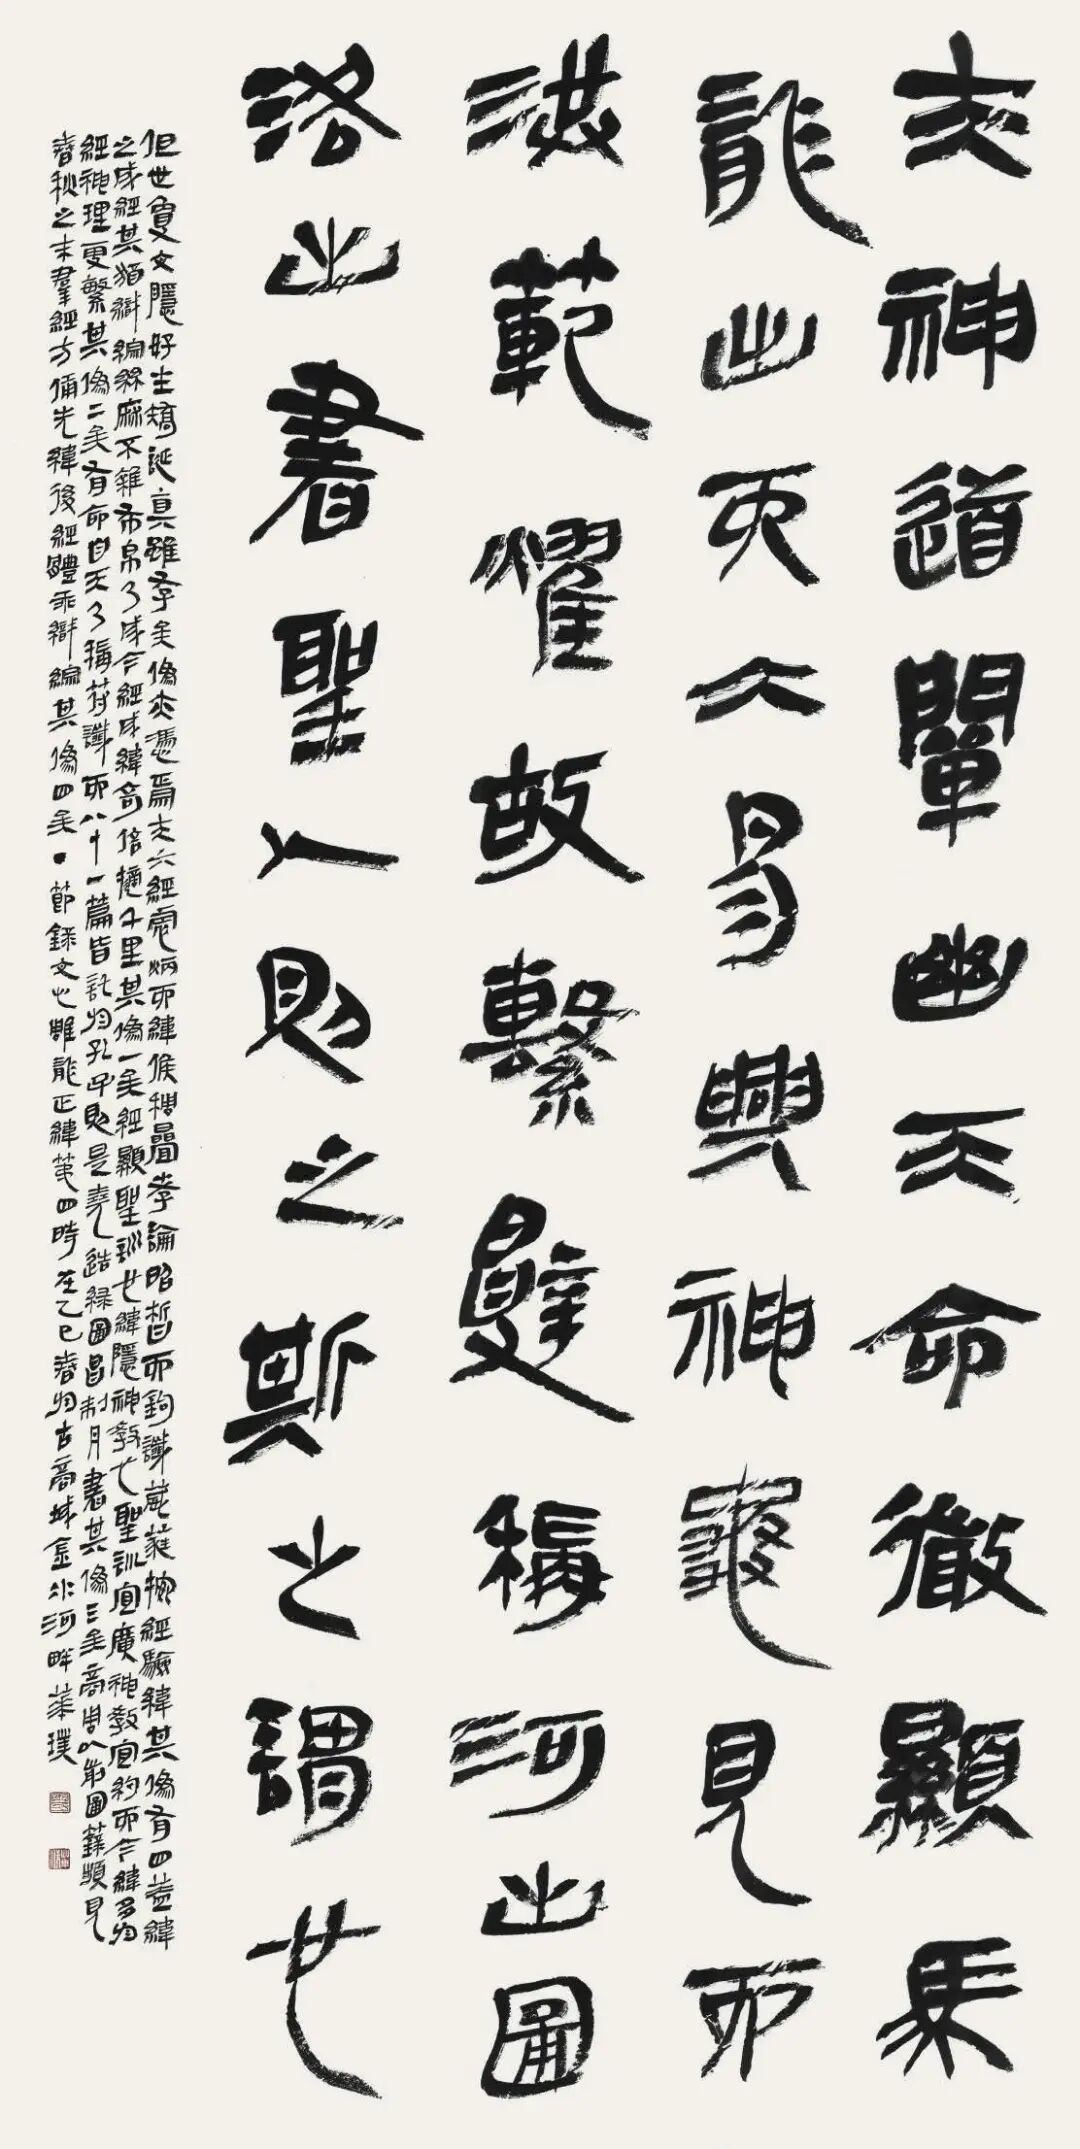 夫神道闡幽天命微顯馬
龍出而大易興神龜見而
洪範耀故繫辭稱河出圖
洛出書聖人則之斯之謂也
但世夐文隱好生矯誕真雖存矣偽亦憑焉夫六經彪炳而緯候稠疊孝論昭晳而鉤讖葳蕤按經驗緯其偽有四蓋緯
之成經其猶織綜絲麻不雜布帛乃成今經正緯奇倍擿千里其偽一矣經顯聖訓也緯隱神教也聖訓宜廣神教宜約而今緯多於
經神理更繁其偽二矣有命自天乃稱符讖而八十一篇皆託於孔子則是堯造綠圖昌制丹書其偽三矣商周以前圖籙頻見
春秋之末羣經方備先緯後經體乖織綜其偽四矣節錄文心雕龍正緯第四時在乙巳春於古商城金水河畔華璞